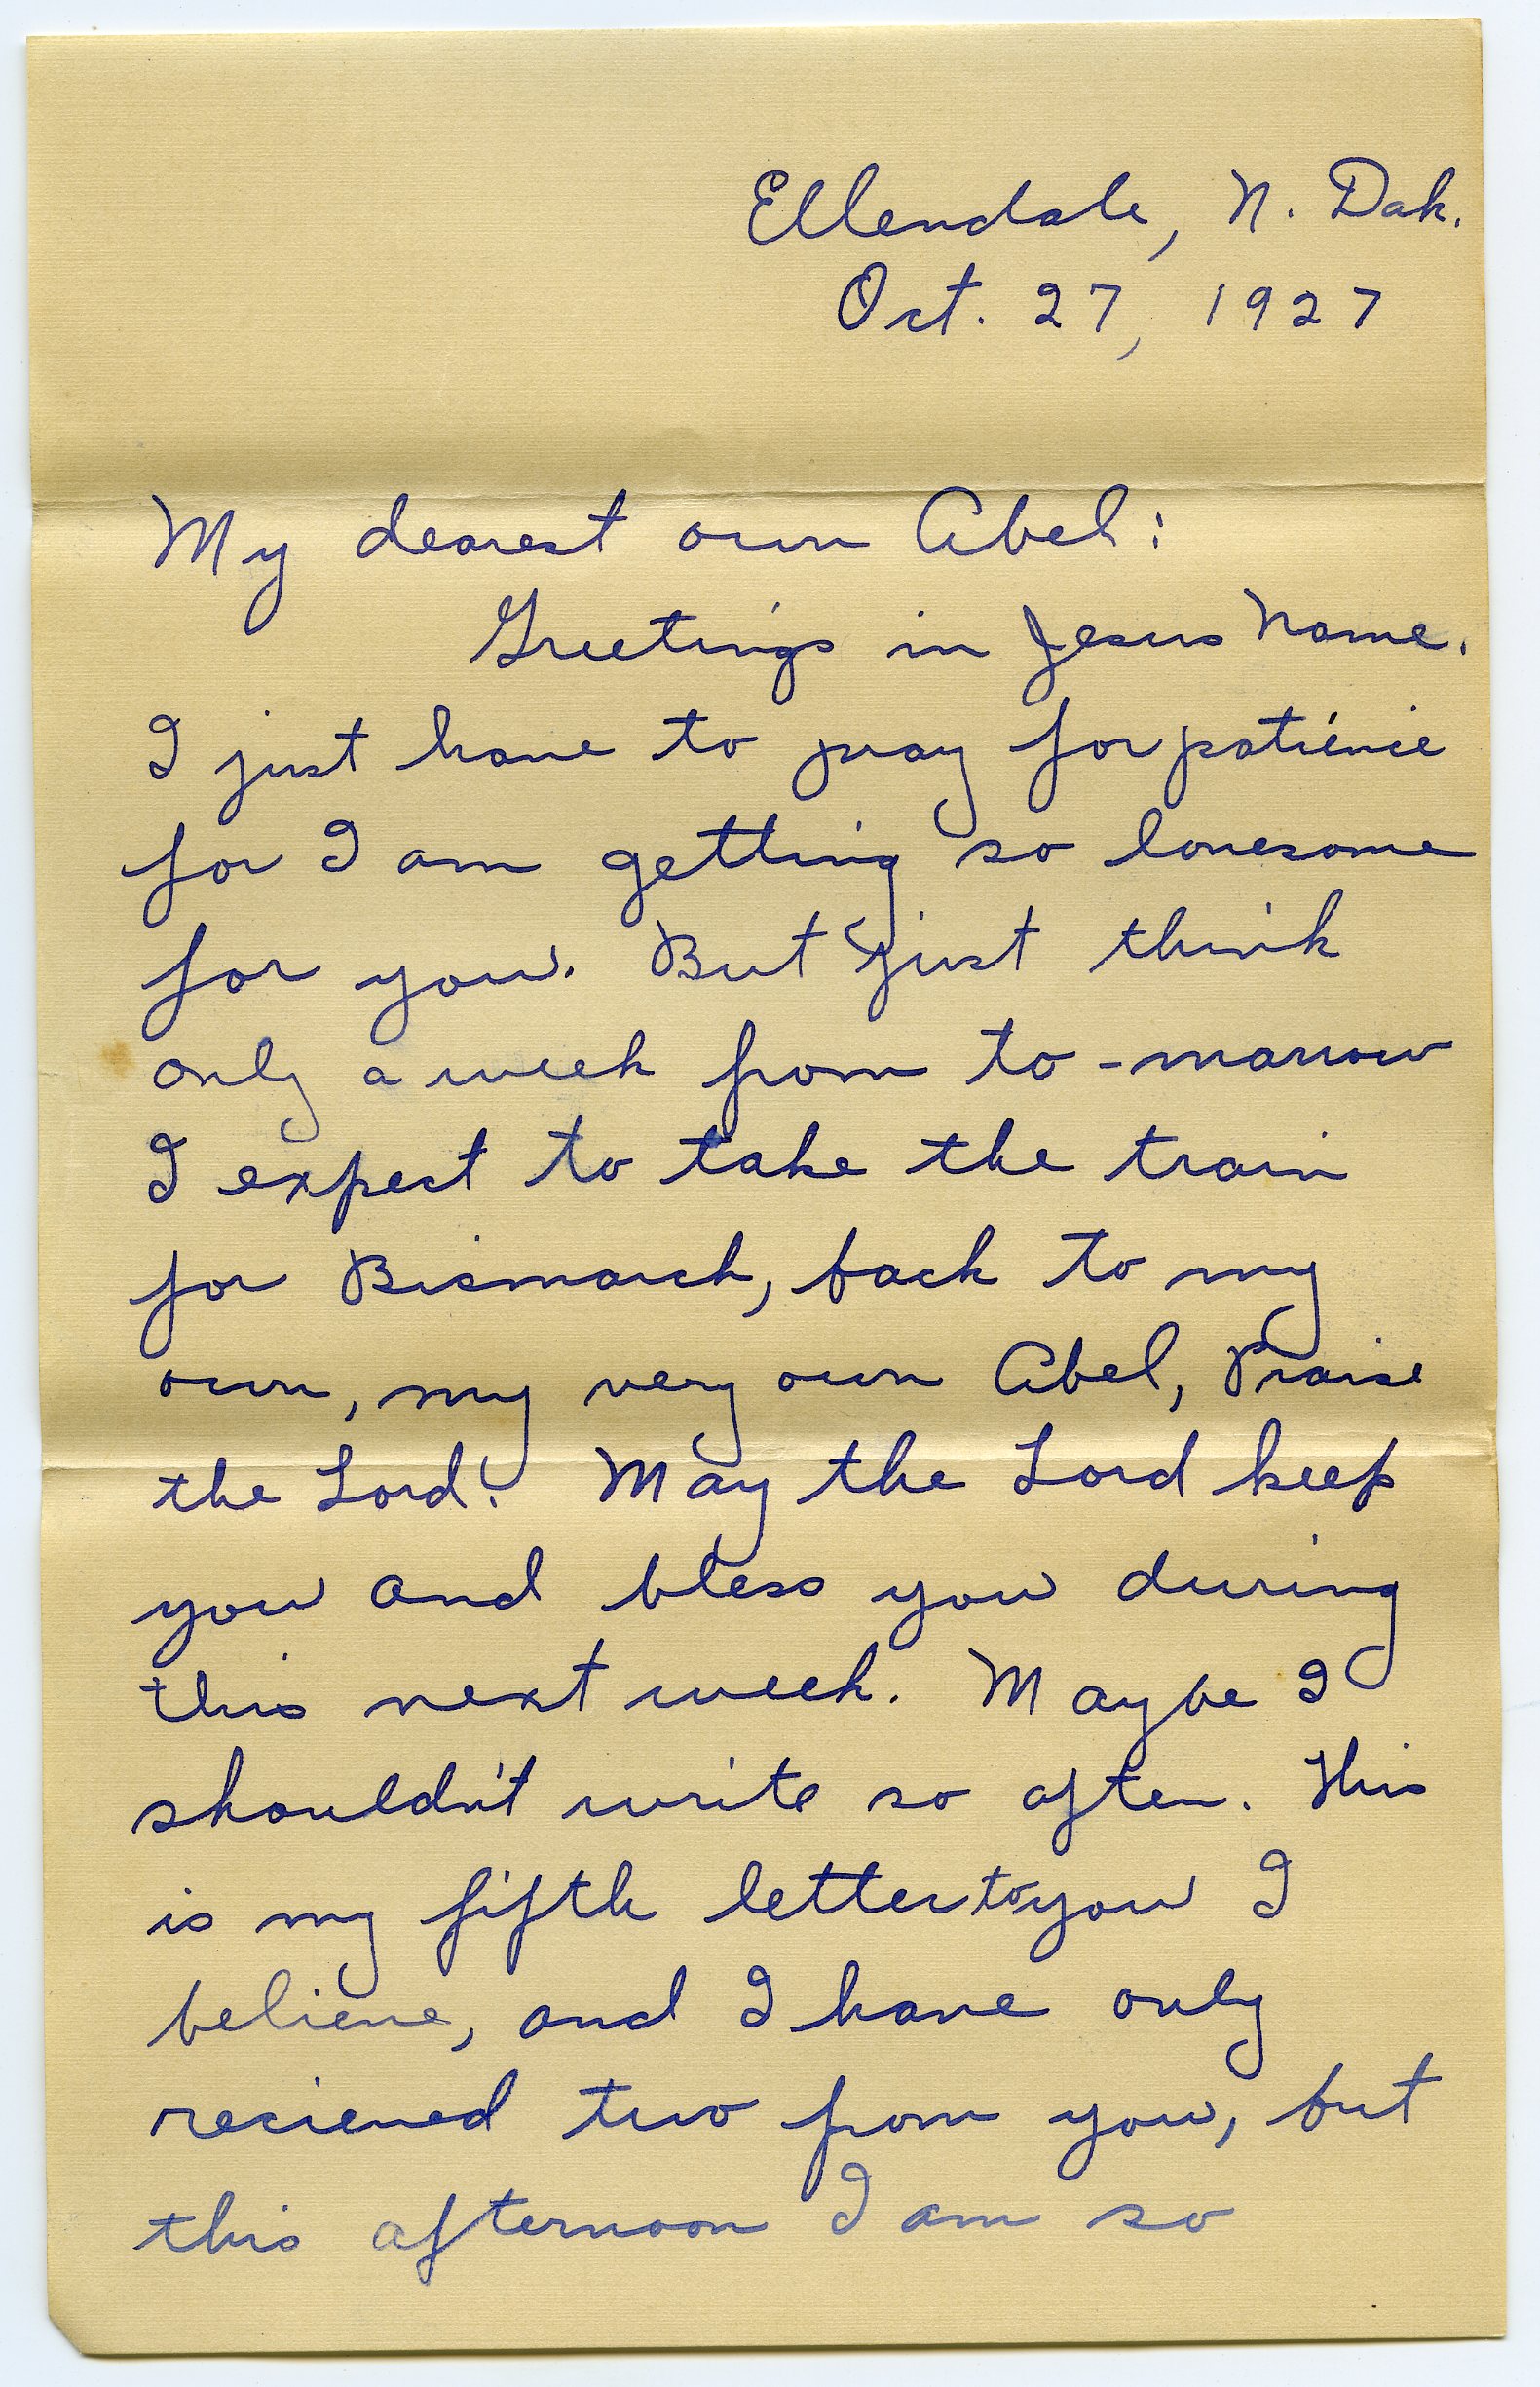 Ellendale, N. Dak.
Oct. 27, 1927
My dearest own Abel:
Greetings in Jesus Name.
I just have to pray for patience
for I am getting so lonesome
for you. But just think
only a week from to-morrow
I expect to take the train
for Bismarck, back to my
own, my very own Abel, Praise
the Lord! May the Lord keep
you and bless you during
this next week. Maybe I
shouldn't write so often. This
is my fifth letter to you I
believe, and I have only
recieved two from you, but
this afternoon I am so